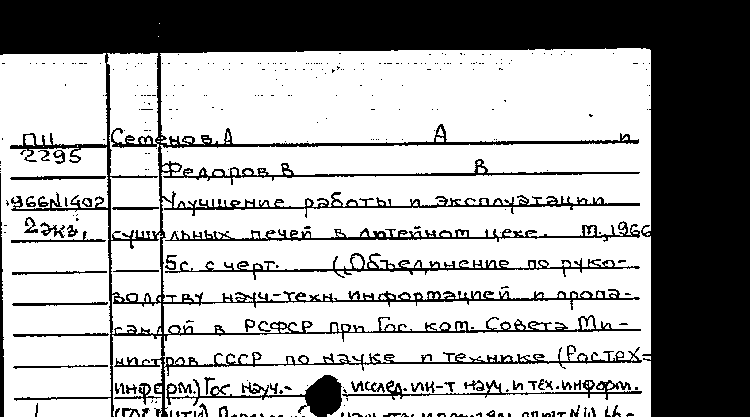 П11 Семенов, А А и
2295
Федоров, В В
966N1402 Улучшение работы и эксплуатации
2экз. сушильных печей в литейном цехе. М., 1966
5с. с черт. (Объединение по руко-
водству науч-техн. информацией и пропа-
гандой в РСФСР при Гос. ком. Совета Ми-
нистров СССР по науке и технике (Ростех-
информ.) Гос. науч.- исслед. ин-т науч. и тех. информ.